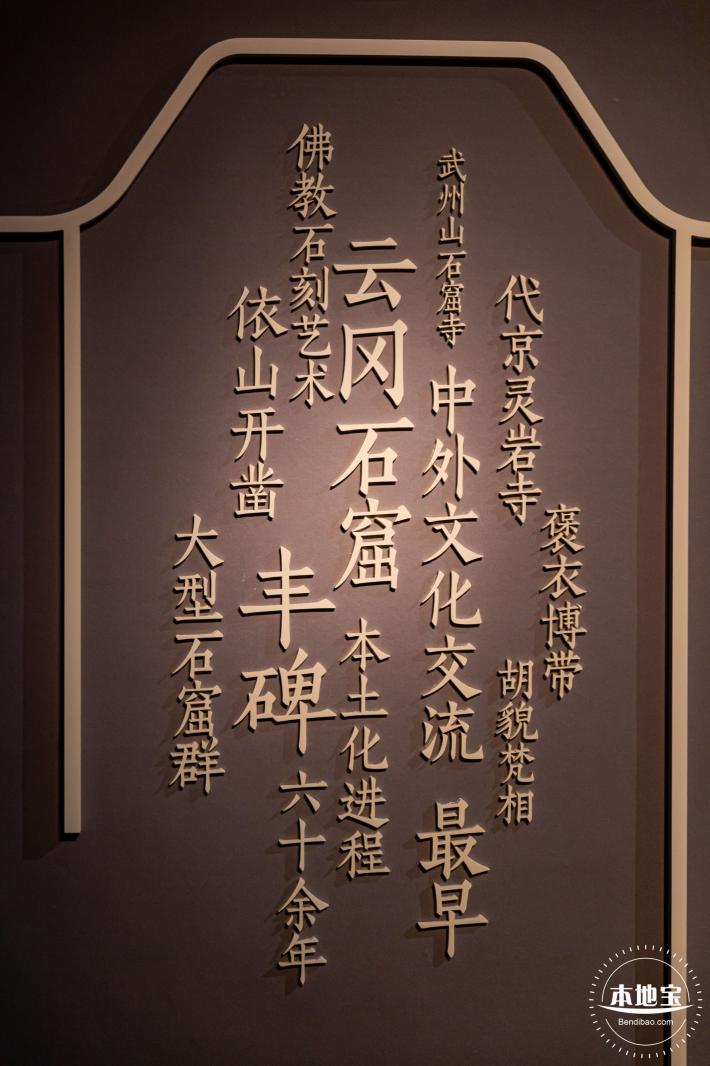 褒衣博带
代京灵岩寺
胡貌梵相
武州山石窟寺
中外文化交流
最早
云冈石窟
本土化进程
佛教石刻艺术
丰碑
六十余年
依山开凿
大型石窟群
本地宝
Bendibao.com